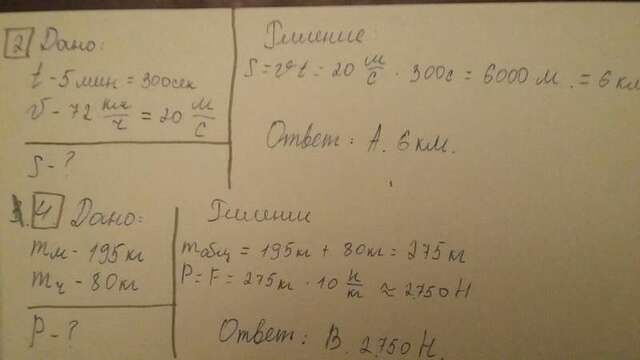 2 Дано:
t - 5 мин = 300 сек
v - 72 км/ч = 20 м/с
S - ?
Решение
S = v·t = 20 м/с · 300с = 6000 м. = 6 км
Ответ: А. 6 км.
4 Дано:
mм - 195 кг
mч - 80 кг
P - ?
Решение
mобщ = 195 кг + 80 кг = 275 кг
P = F = 275 кг · 10 Н/кг ≈ 2750 Н
Ответ: В. 2750 Н.